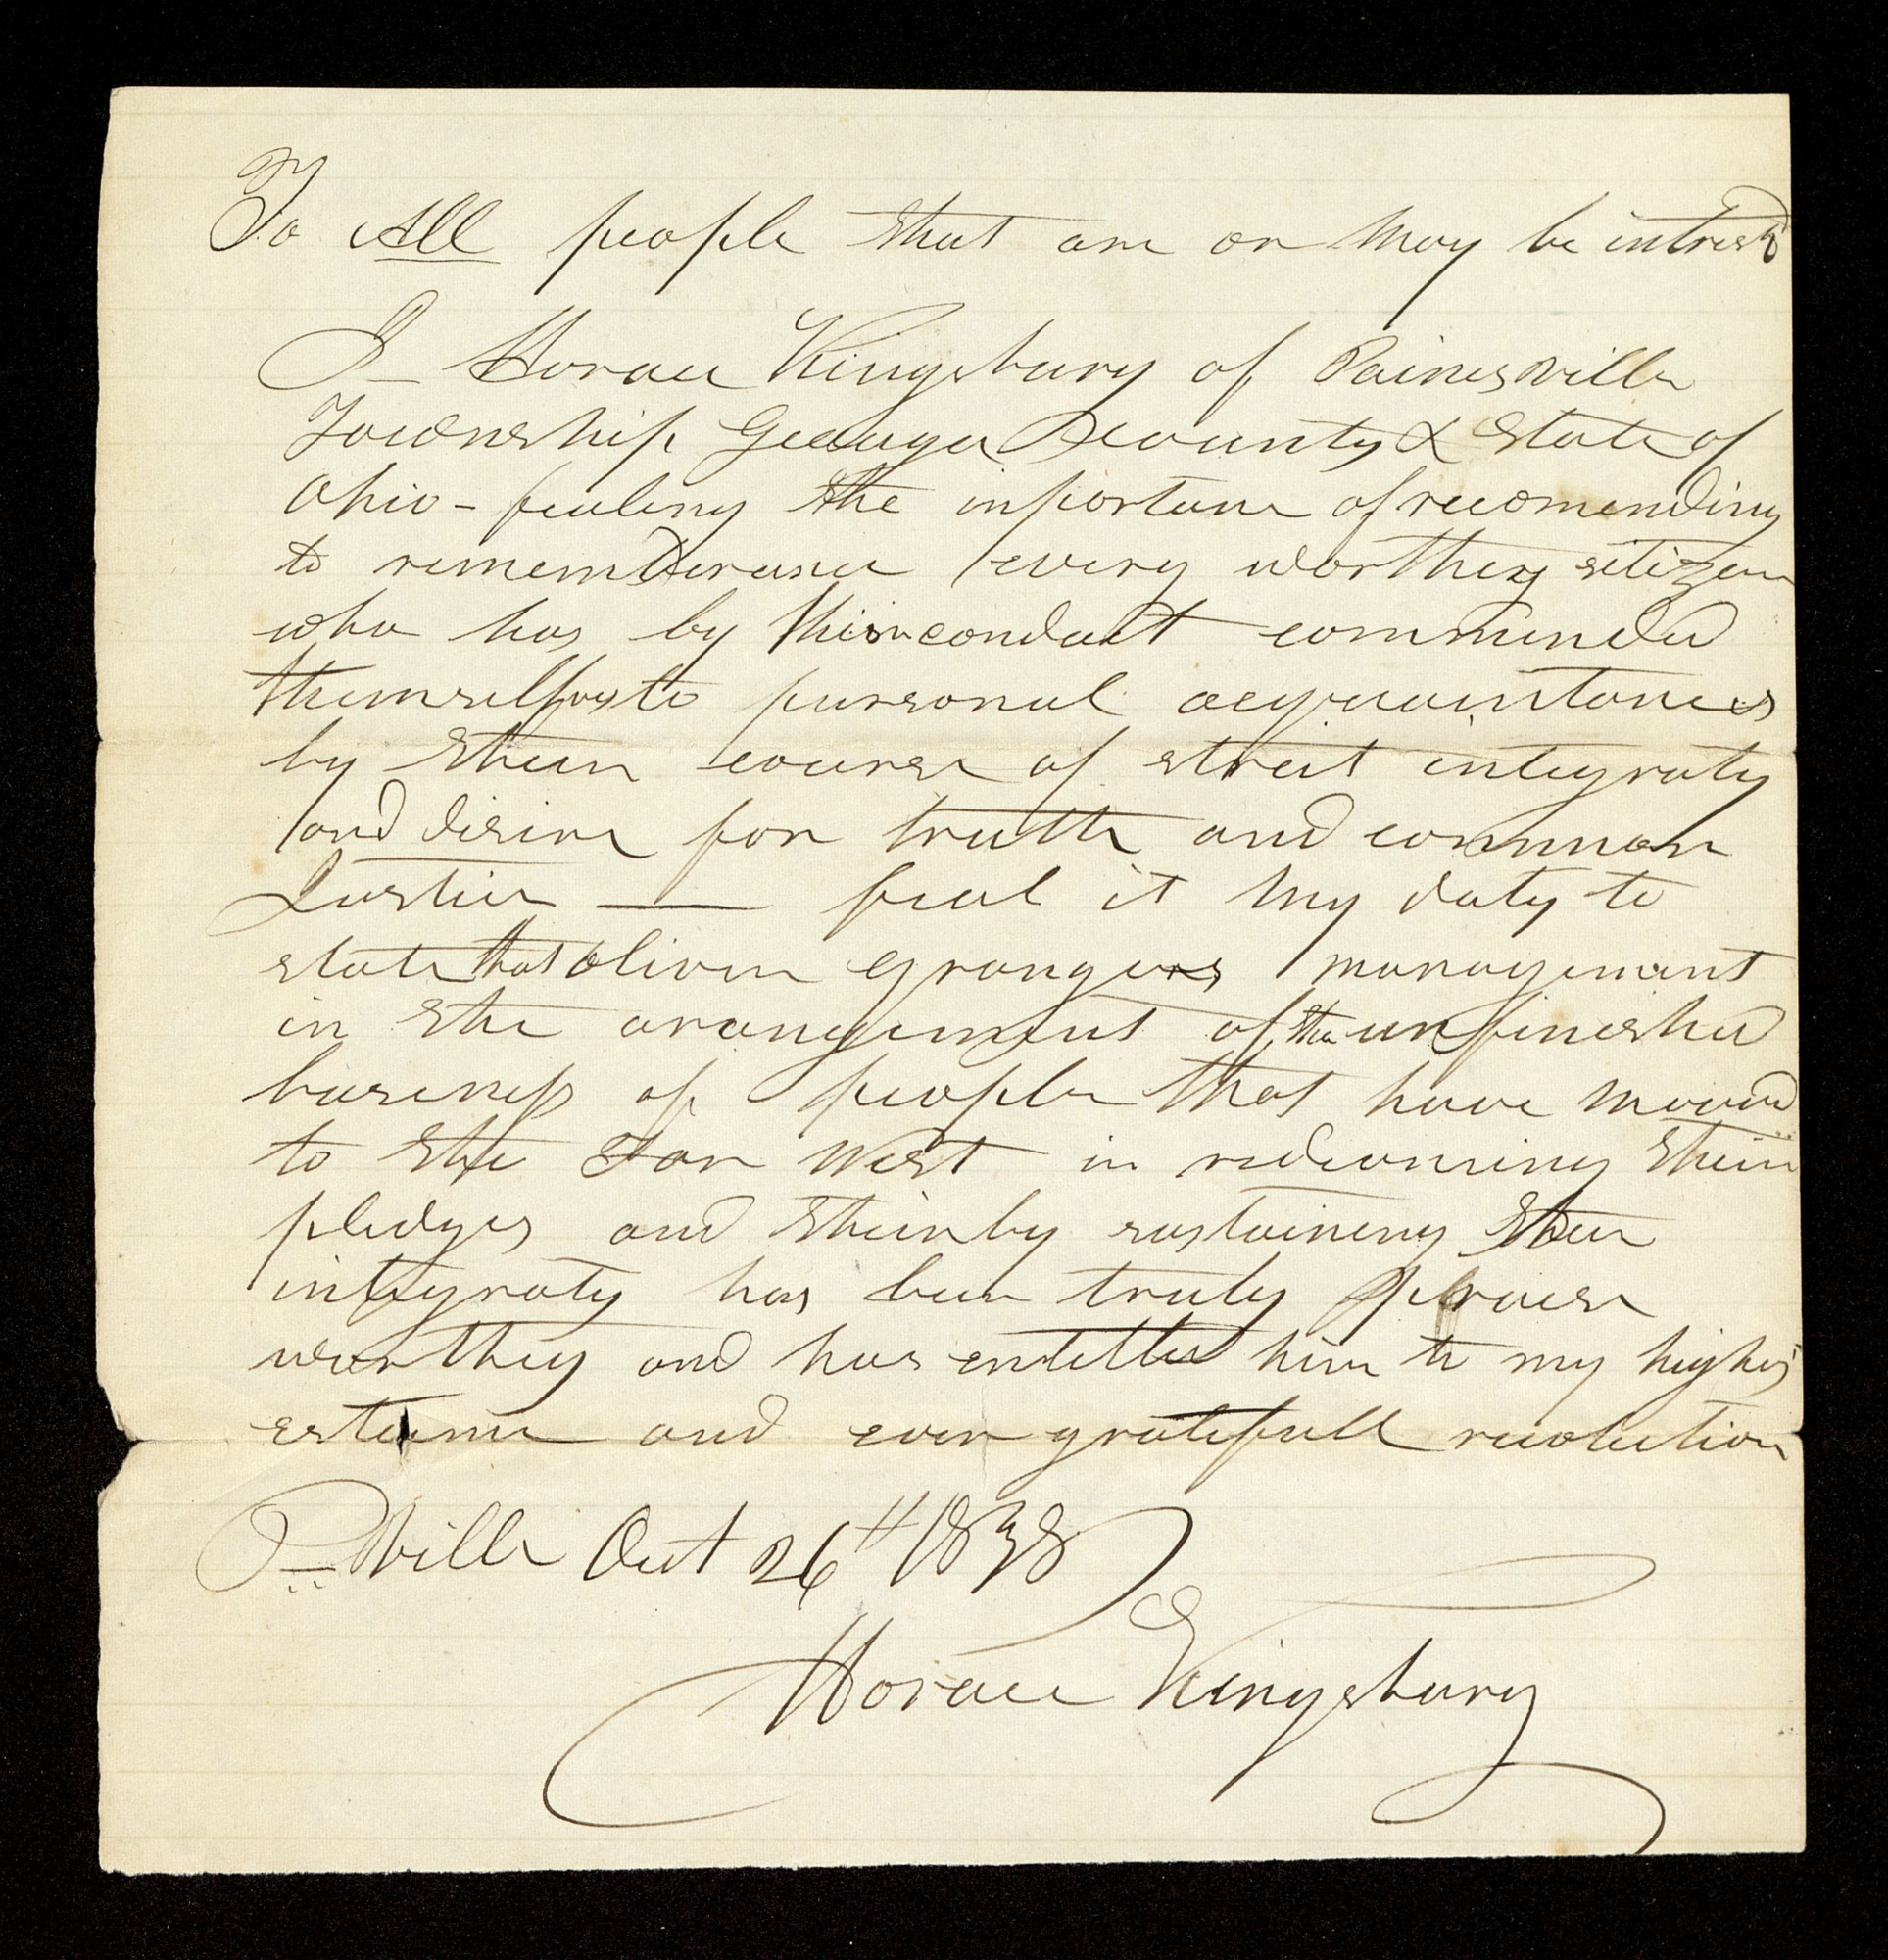 To All people that are or may be intrestd
I Horace Kingsbury of Painesville
Township Geauga County & State of
Ohio - fealing the inportance of recomending
to rememberance every worthey sitizen
who has by their conduct commended
themselves to personal acquaintances
by their course of strict integraty
and disire for truth and common
Justice — feal it my duty to
state that Oliver Grangers management
in the arangement of the unfinished
business of people that have moved
to the Far West in redeaming their
pledges and theirby sustaineing their
integraty has been truly praise
worthey and has entitled him to my highes
esteame and ever gratefull recolection
P=Ville Oct 26th 1838
Horace Kingsbury